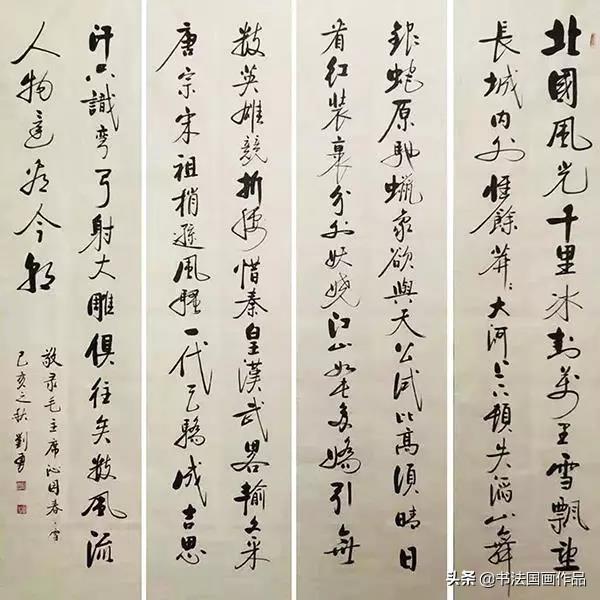 北國風光千里冰封萬里雪飄望
長城内外惟餘莽々大河上下頓失滔々山舞
銀蛇原馳蠟象欲與天公試比高須晴日
看紅裝裹分外妖嬈江山如此多嬌引無
數英雄競折腰惜秦皇漢武略輸文采
唐宗宋祖稍遜風騷一代天驕成吉思
汗只識彎弓射大雕俱往矣數風流
人物還看今朝
敬录毛主席沁园春·雪
己亥之秋劉勇
头条 @书法国画作品